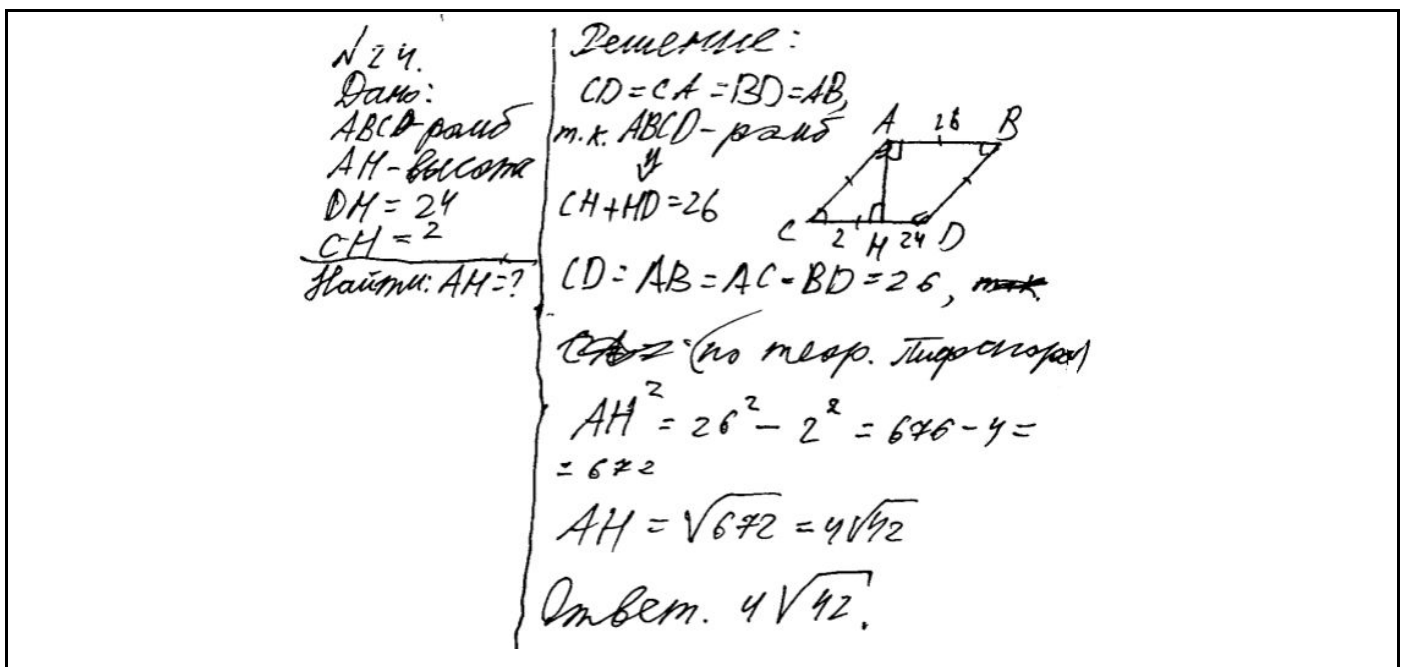 №24.
Дано:
ABCD-ромб
AH-высота
DH = 24
CH = 2
Найти: AH=?
Решение:
CD = CA = BD = AB,
т.к. ABCD - ромб
⇓
CH + HD = 26
A 26 B
C 2 H 24 D
CD = AB = AC = BD = 26,
(по теор. Пифагора)
AH² = 26² - 2² = 676 - 4 =
= 672
AH = √672 = 4√42
Ответ. 4√42.